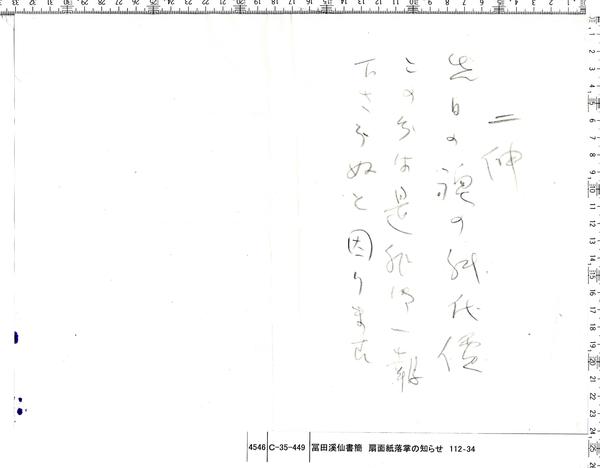 二伸
先日の襖の紙代價
この分は是非御一報
下さらぬと困ります
4546 C-35-449 冨田溪仙書簡 扇面紙落掌の知らせ 112-34